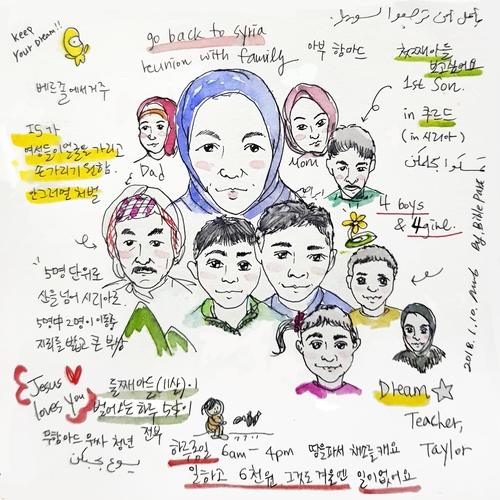 Keep
Your Dream!!
go back to Syria
reunion with family
아부 함마드
첫째아들
보고싶어요
1st Son.
in 쿠르드
(in 시리아)
베르쫄에서거주
IS가
여성들이얼굴을 가리고
손가리기 원함.
안그러면 처벌
& Dad
Mom
4 boys
& 4 girl
5명 단위로
산을 넘어 시리아로
5명中 2명이 이동中
지뢰를 밟고 큰 부상
Jesus
loves You
둘째아들(11살)이
벌어오는 하루 5$이
전부
무함마드 워싸 청년
하루종일 6am - 4pm 땅을파서 채소를 캐요
일하고 6천원 그것도 겨울엔 일이없어요
Dream
Teacher,
Taylor
2018.1.10.
By. Bible Park